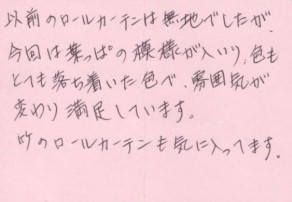 以前のロールカーテンは無地でしたが、
今回は葉っぱの模様が入いり、色も
とても落ち着いた色で、雰囲気が
変わり満足しています。
竹のロールカーテンも気に入ってます。